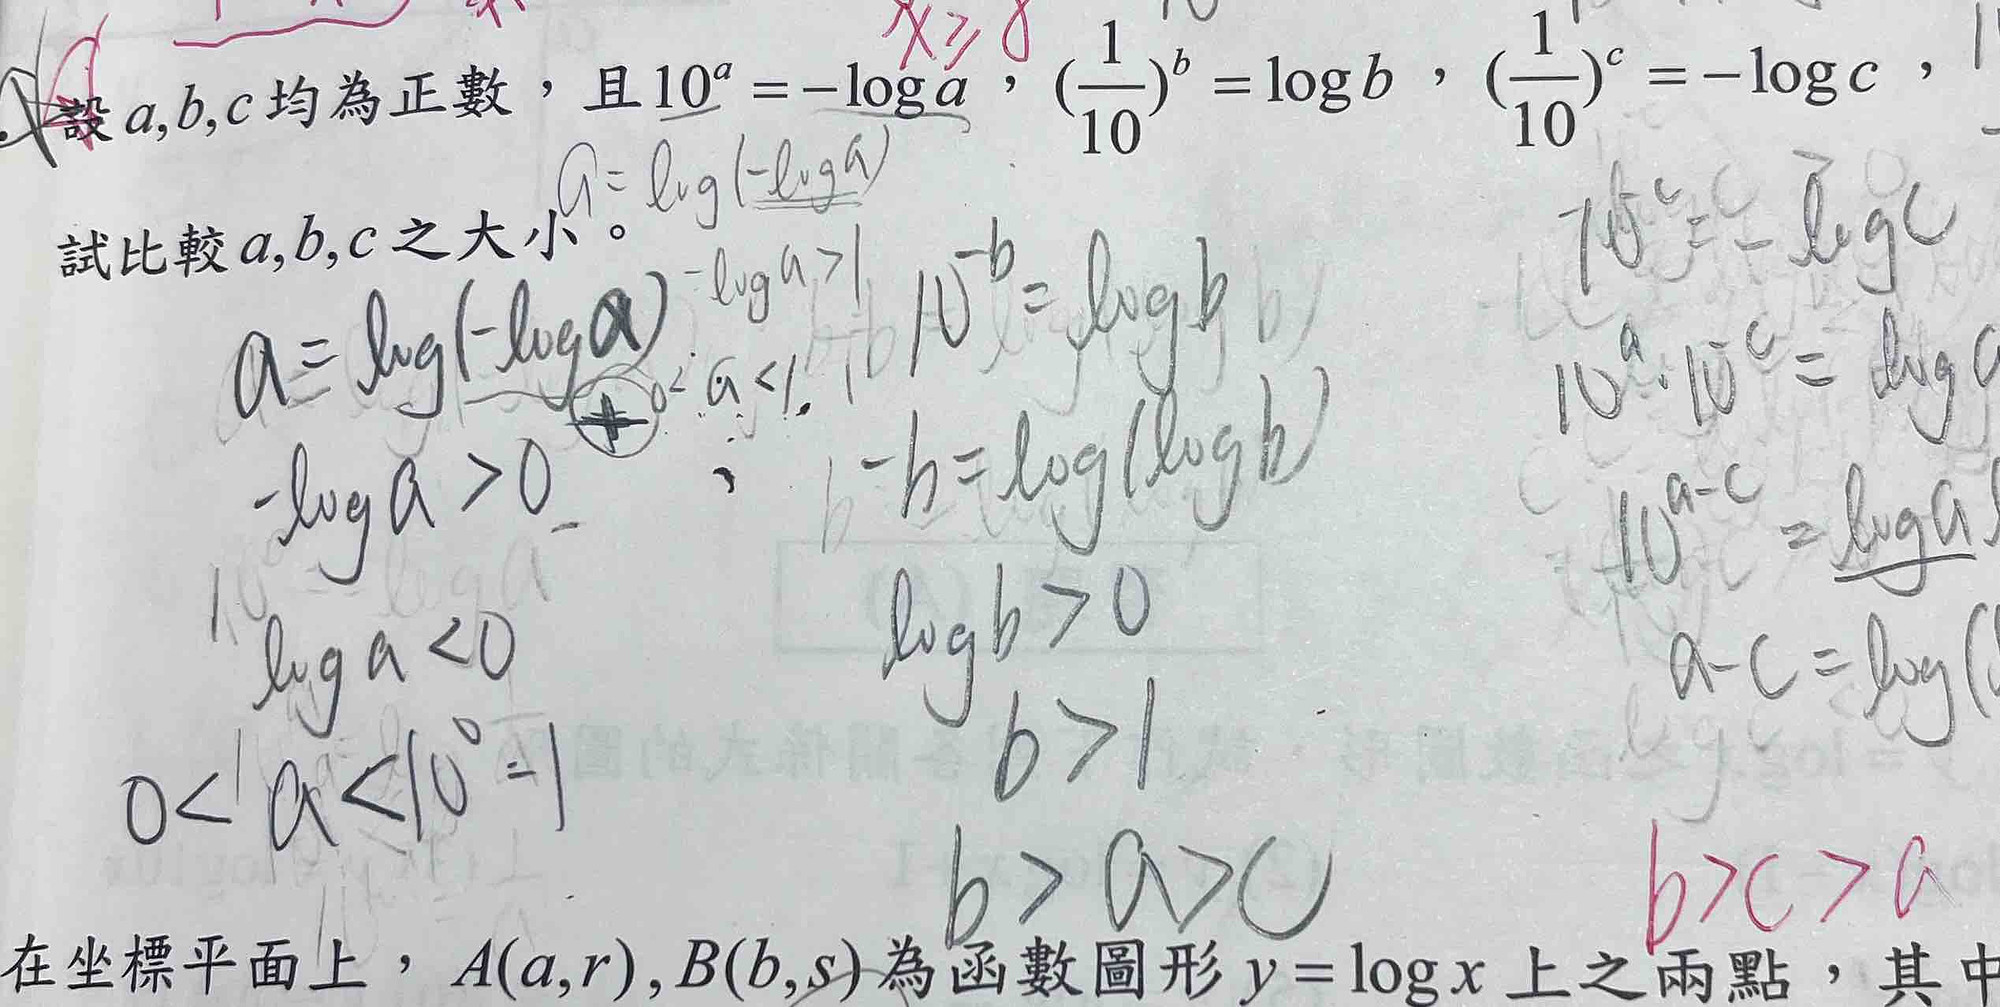 x≥8
設a,b,c均為正數，且10^a = -log a，(1/10)^b = log b，(1/10)^c = -log c，
a = log(-log a)
試比較a,b,c之大小。
-log a > 1
0 < a < 1
a = log(-log a)
+
-log a > 0
log a < 0
0 < a < 10^0 = 1
10^-b = log b
-b = log(log b)
log b > 0
b > 1
b > a > c
= -log c
10^a · 10^-c = log a
10^{a-c} = log a
a-c = log(
b > c > a
在坐標平面上，A(a,r),B(b,s)為函數圖形y = log x上之兩點，其中